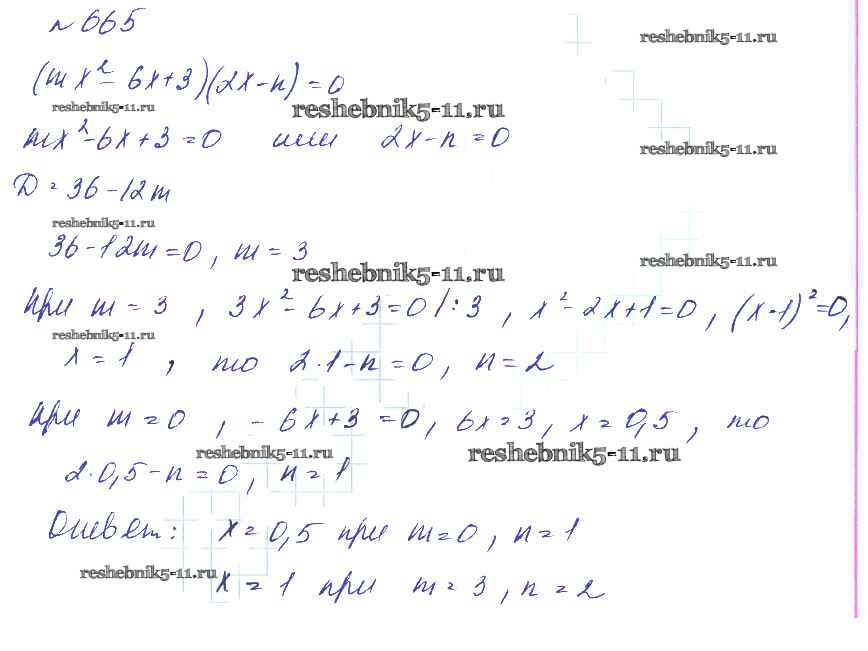 № 665
reshebnik5-11.ru
(mx² - 6x + 3)(2x - n) = 0
reshebnik5-11.ru reshebnik5-11.ru
mx² - 6x + 3 = 0 или 2x - n = 0
reshebnik5-11.ru
D = 36 - 12m
reshebnik5-11.ru
36 - 12m = 0, m = 3
reshebnik5-11.ru reshebnik5-11.ru
при m = 3, 3x² - 6x + 3 = 0 /:3, x² - 2x + 1 = 0, (x-1)² = 0,
reshebnik5-11.ru
x = 1, то 2·1 - n = 0, n = 2
при m = 0, - 6x + 3 = 0, 6x = 3, x = 0,5, то
reshebnik5-11.ru reshebnik5-11.ru
2·0,5 - n = 0, n = 1
Ответ: x = 0,5 при m = 0, n = 1
reshebnik5-11.ru
x = 1 при m = 3, n = 2